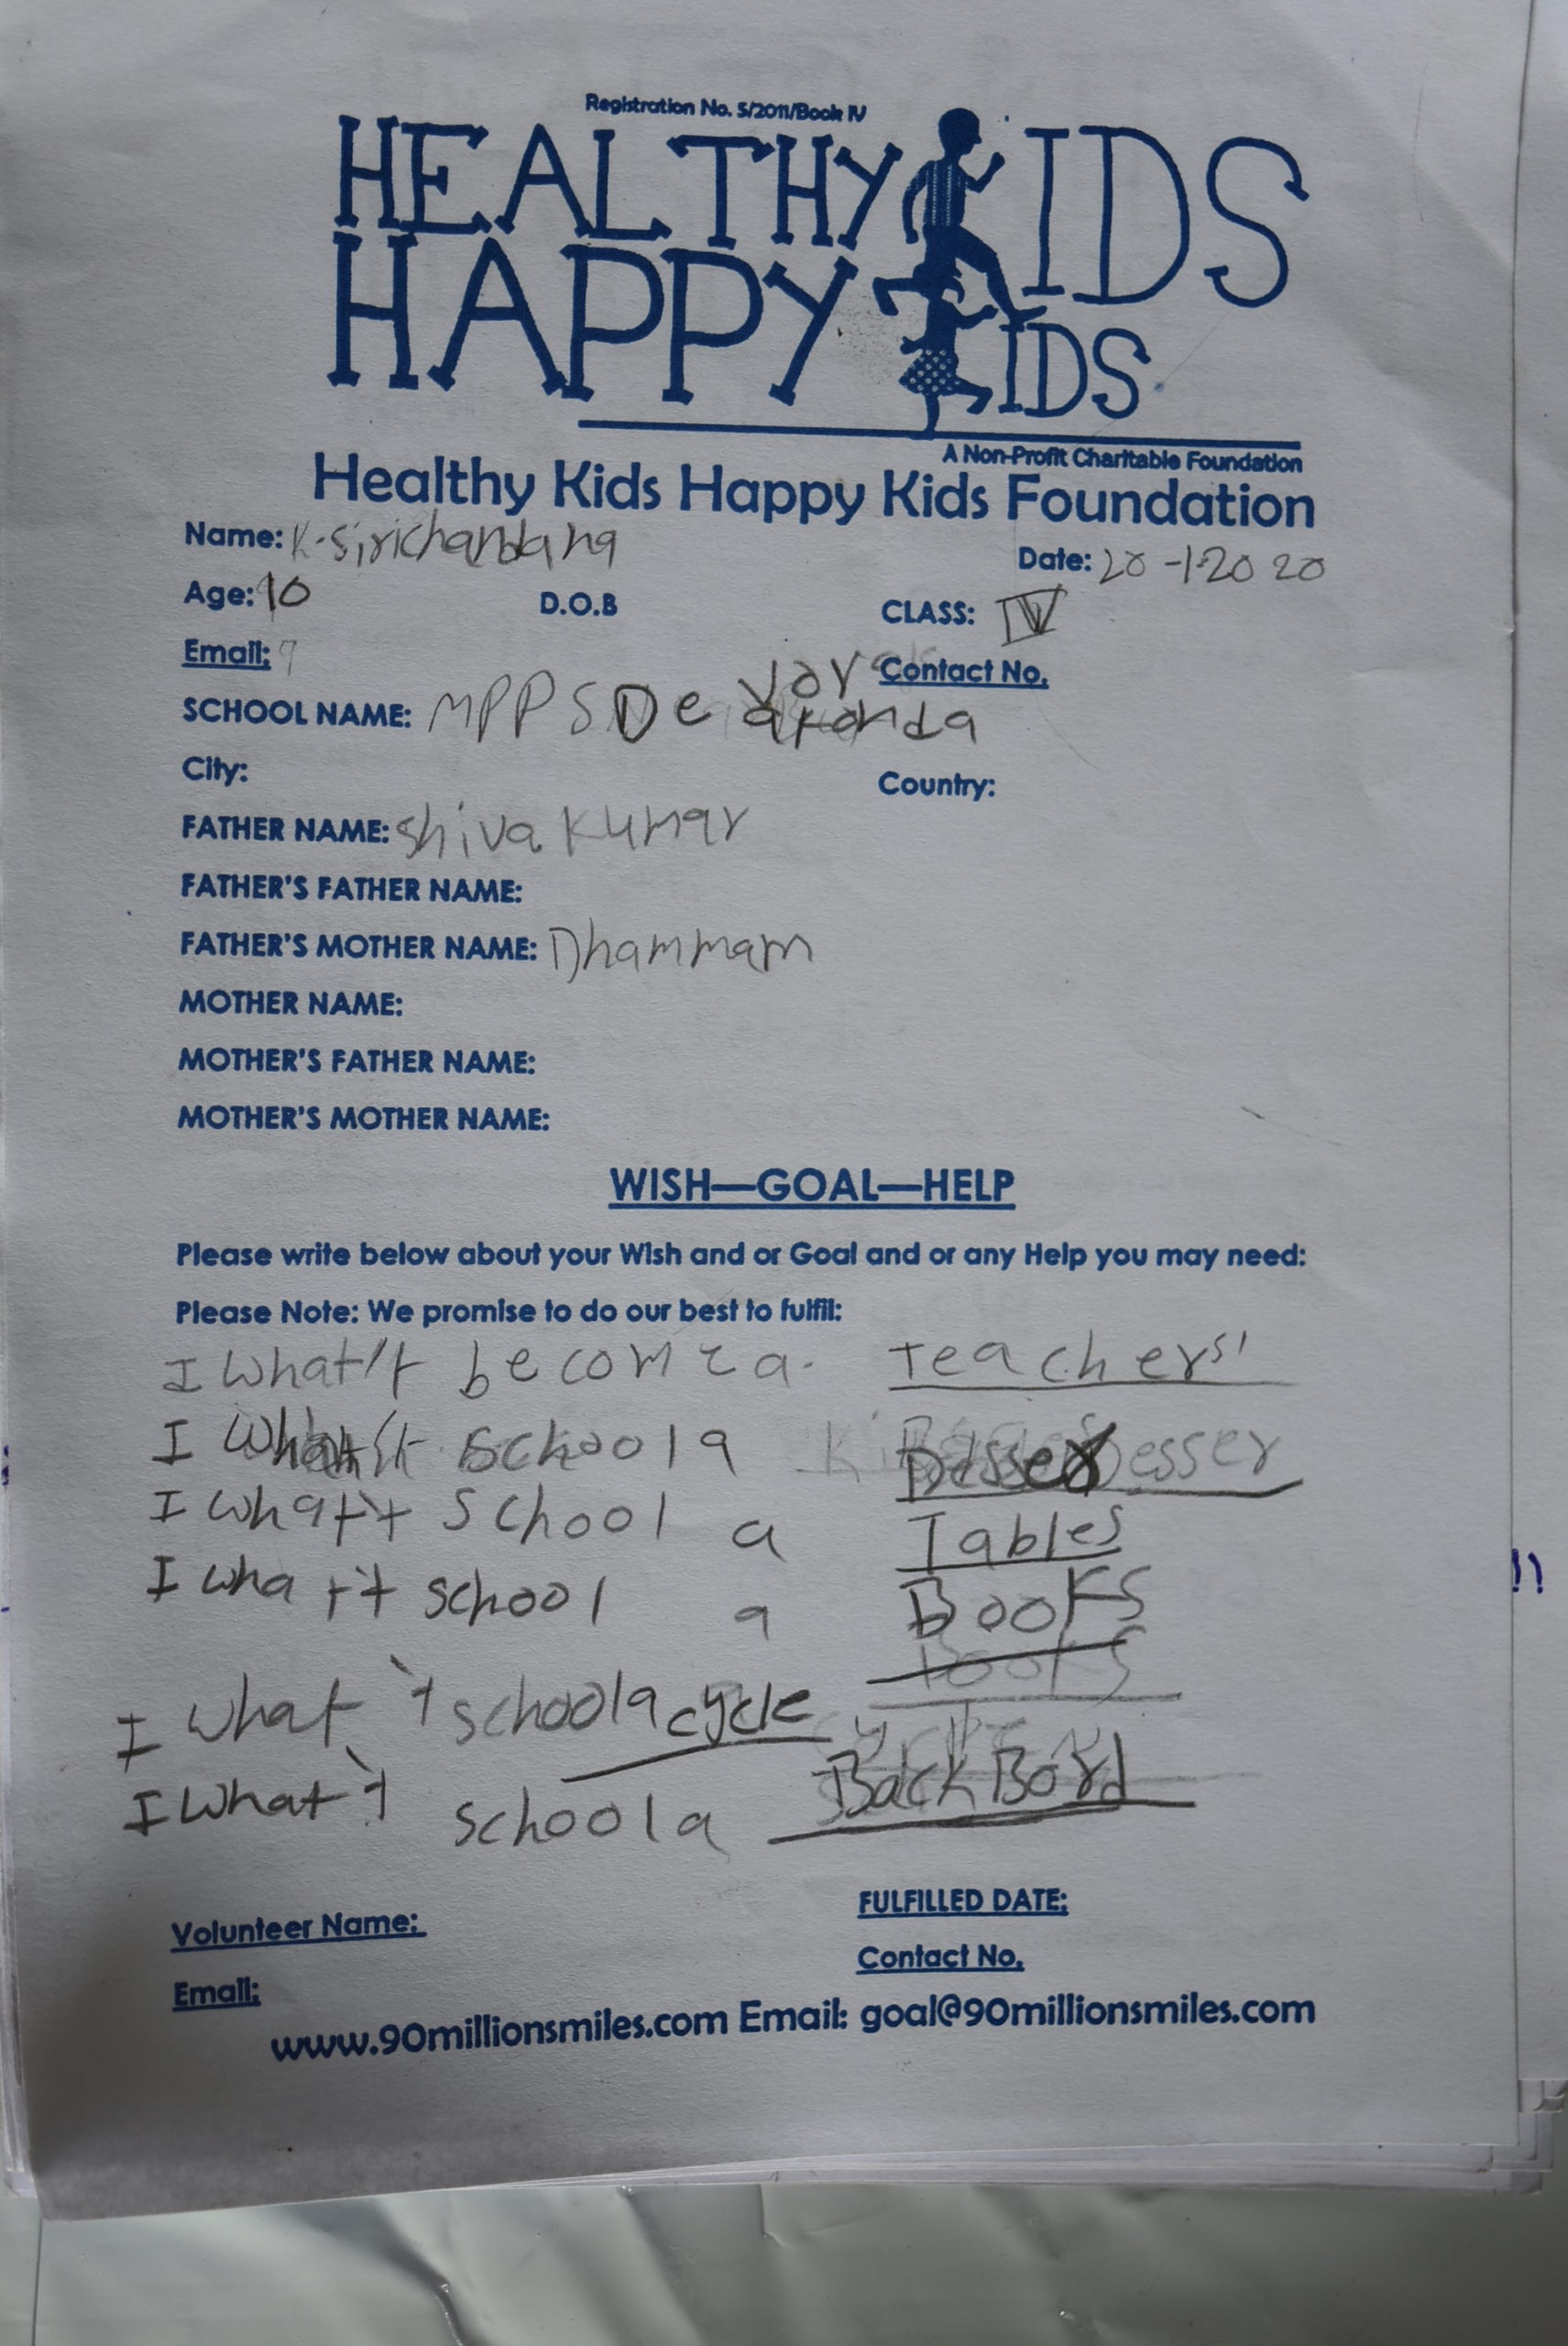 Registration No. 5/2011/Book IV
HEALTHY KIDS
HAPPY KIDS
A Non-Profit Charitable Foundation
Healthy Kids Happy Kids Foundation
Name: K. Sirichandana
Date: 20-1-2020
Age: 10 D.O.B CLASS: IV
Email: 9 Contact No.
SCHOOL NAME: MPPS Devarakonda
City: Country:
FATHER NAME: Shiva Kumar
FATHER'S FATHER NAME:
FATHER'S MOTHER NAME: Dhammam
MOTHER NAME:
MOTHER'S FATHER NAME:
MOTHER'S MOTHER NAME:
WISH—GOAL—HELP
Please write below about your Wish and or Goal and or any Help you may need:
Please Note: We promise to do our best to fulfil:
I what't become a. teachers'
I what't school a Desser
I what't school a Tables
I what't school a Books
books
I what't school a cycle
I what't school a Back Bord
FULFILLED DATE:
Volunteer Name:
Contact No.
Email:
www.90millionsmiles.com Email: goal@90millionsmiles.com